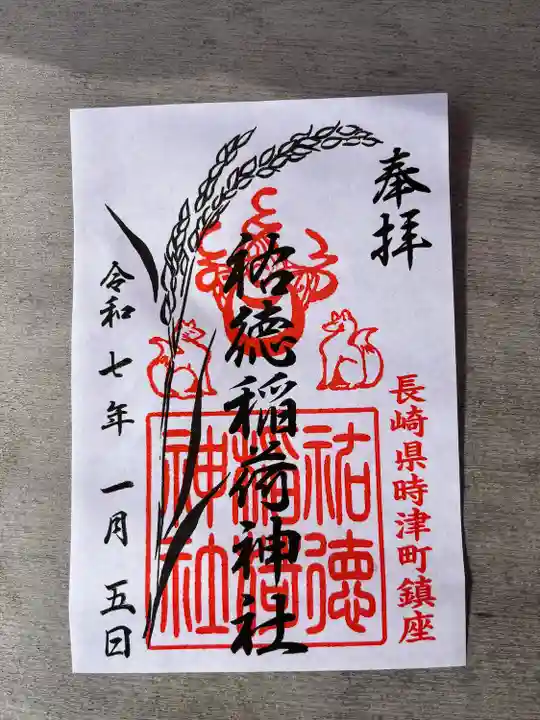 奉拝
長崎県時津町鎮座
祐徳稲荷神社
祐徳
稲荷
神社
令和七年 一月 五日